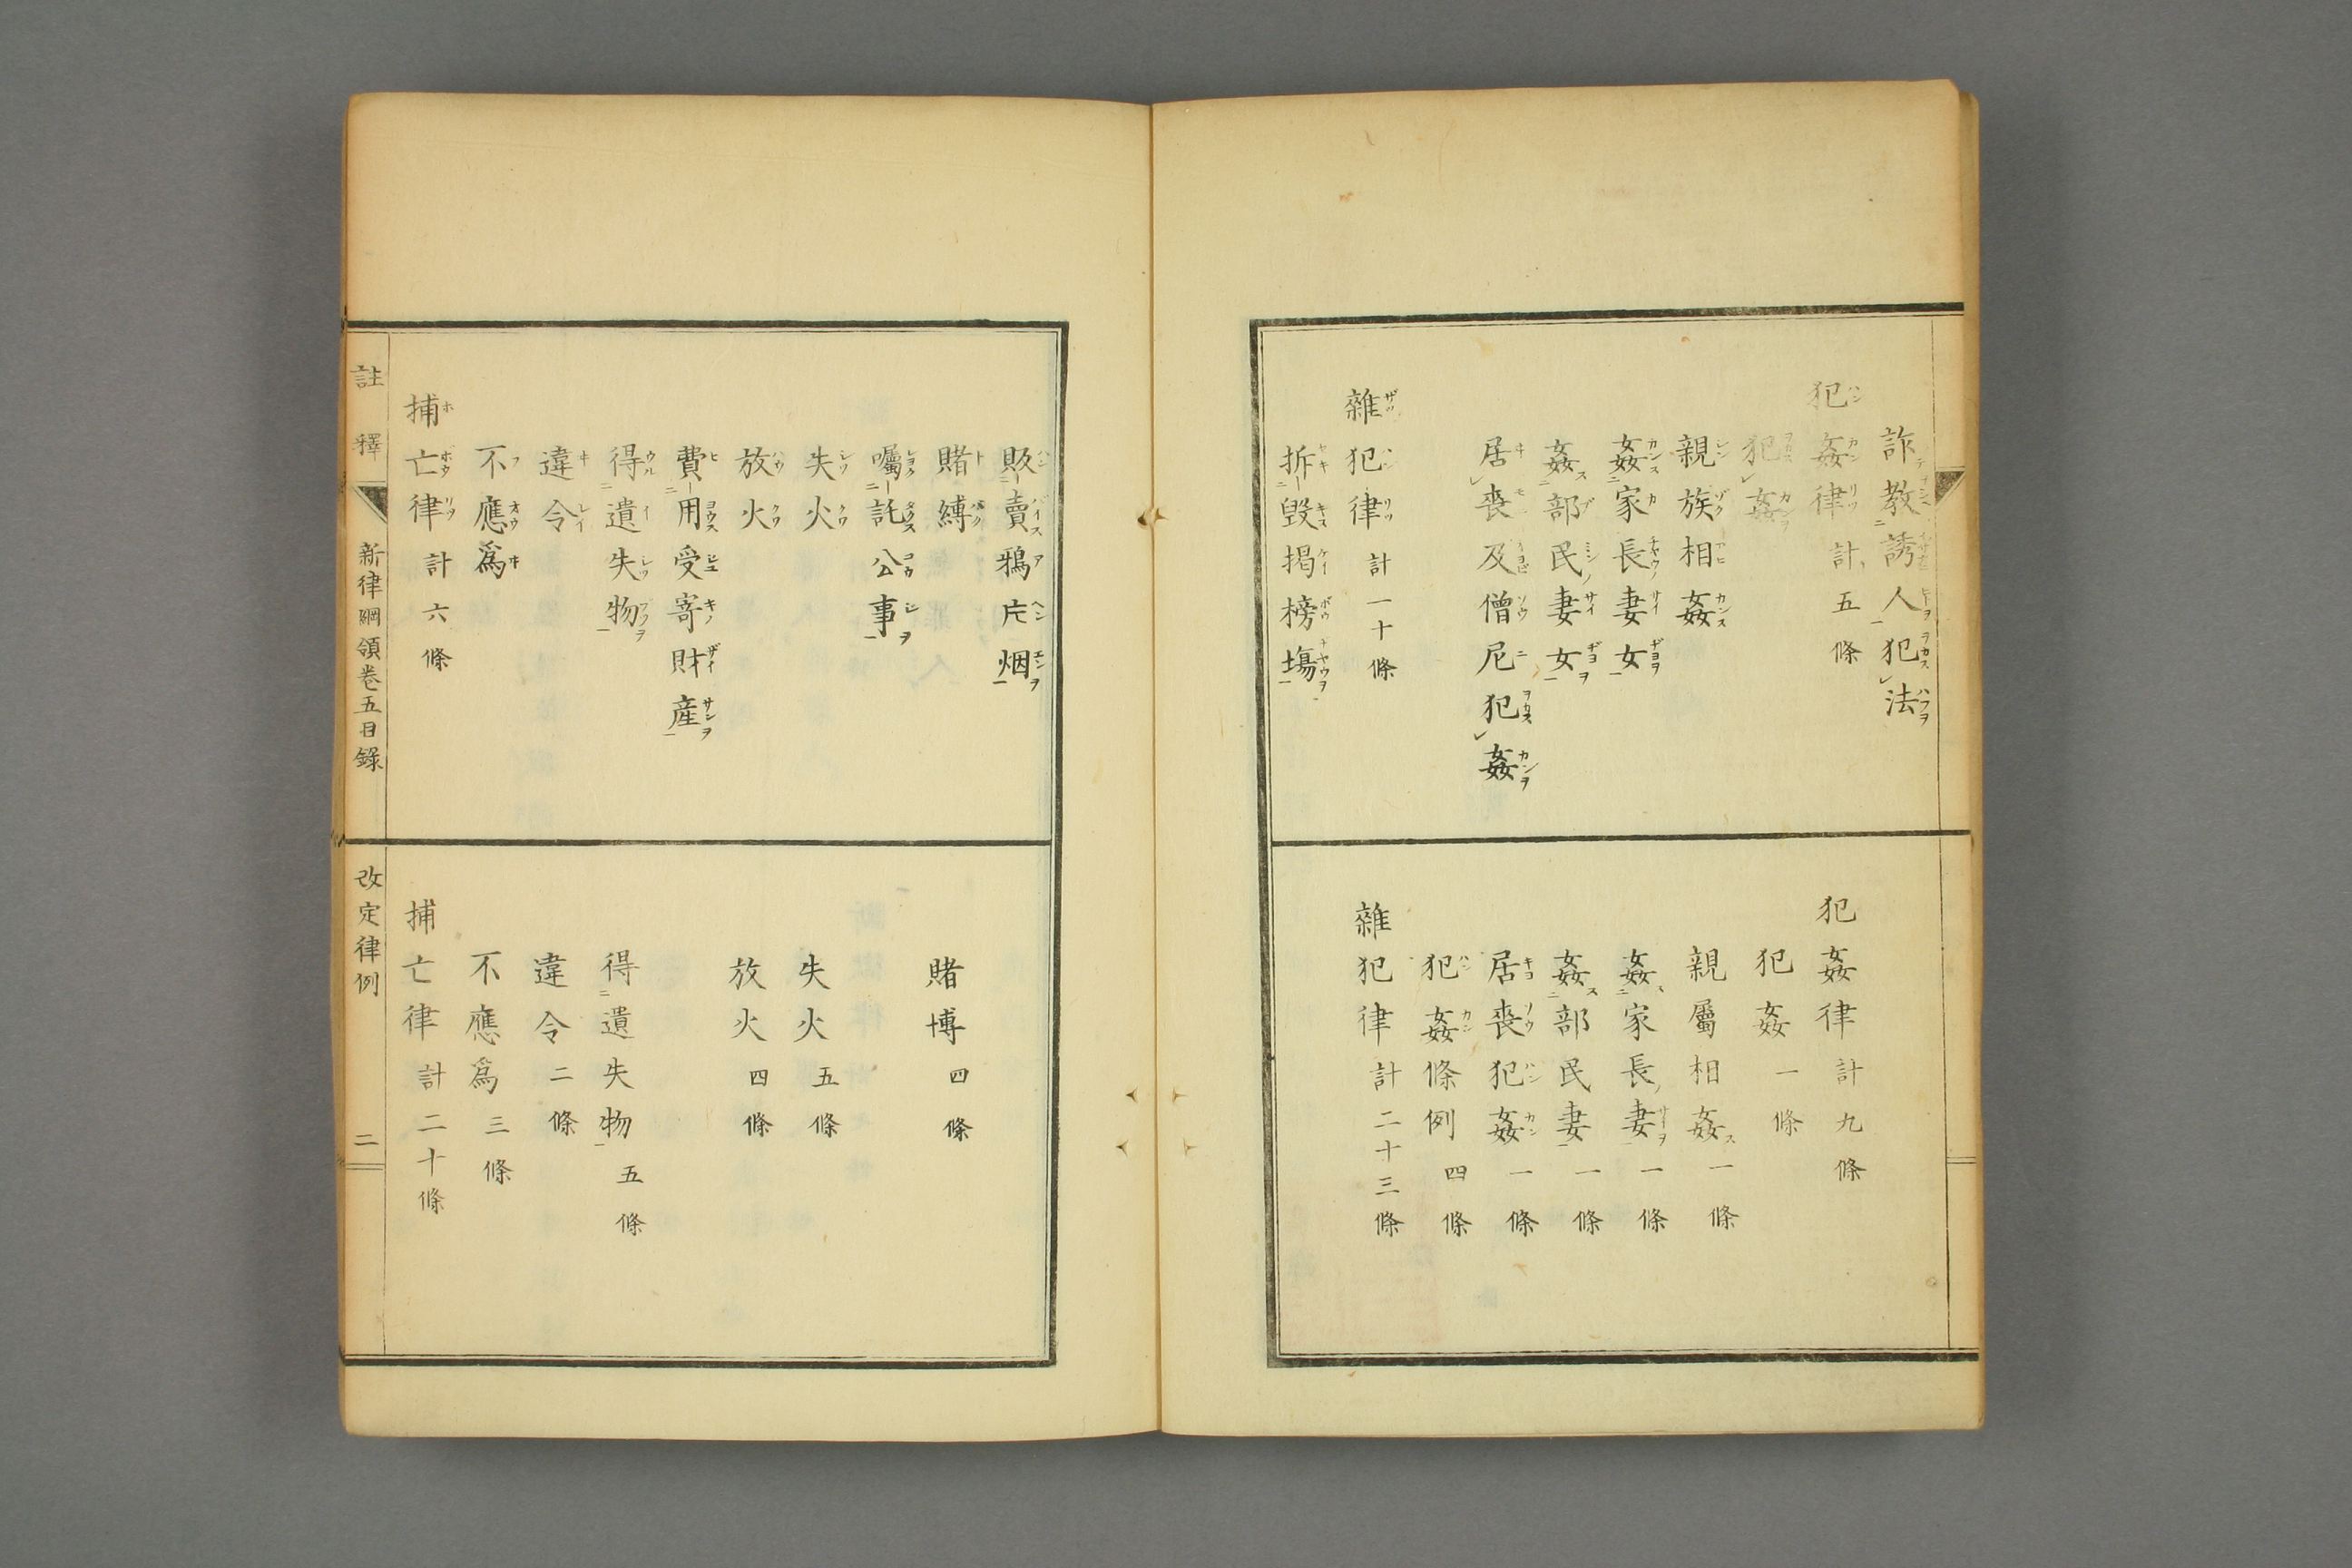 詐教誘人犯法
犯姦律 計五條
犯姦
親族相姦
姦家長妻女
姦部民妻女
居喪及僧尼犯姦
雜犯律 計一十條
拆毀掲榜場
犯姦律 計九條
犯姦 一條
親屬相姦 一條
姦家長妻 一條
姦部民妻 一條
居喪犯姦 一條
犯姦條例 四條
雜犯律 計二十三條
販賣鴉片烟
賭縛
囑託公事
失火
放火
費用受寄財産
得遺失物
違令
不應爲
捕亡律 計六條
賭博 四條
失火 五條
放火 四條
得遺失物 五條
違令 二條
不應爲 三條
捕亡律 計二十條
註釋 新律綱領卷五目錄 改定律例 二